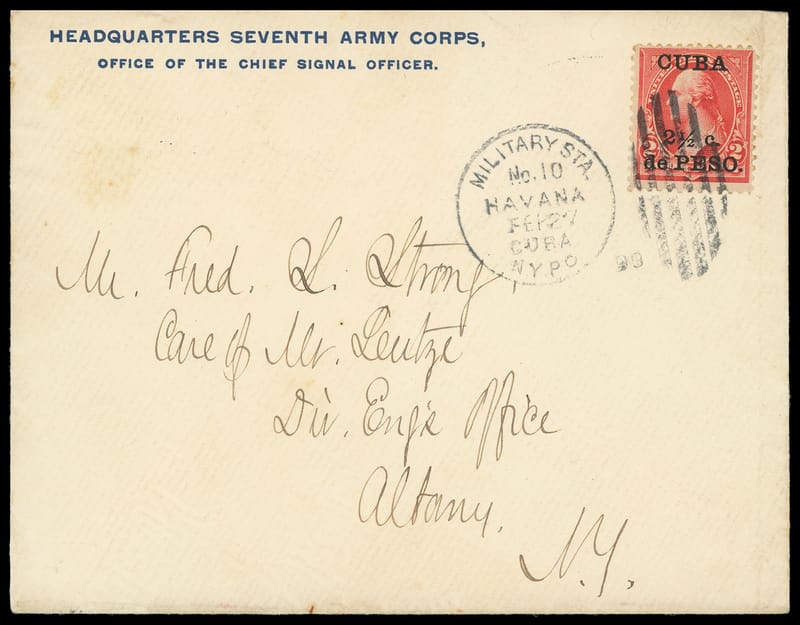 HEADQUARTERS SEVENTH ARMY CORPS,
OFFICE OF THE CHIEF SIGNAL OFFICER.
CUBA
2½ c.
de PESO.
2 2
MILITARY STA.
No. 10
HAVANA
FEB 27
CUBA
N.Y.P.O.
99
Mr. Fred. L. Strong,
Care of Mr. Leutze
Div. Eng's Office
Albany,
N.Y.